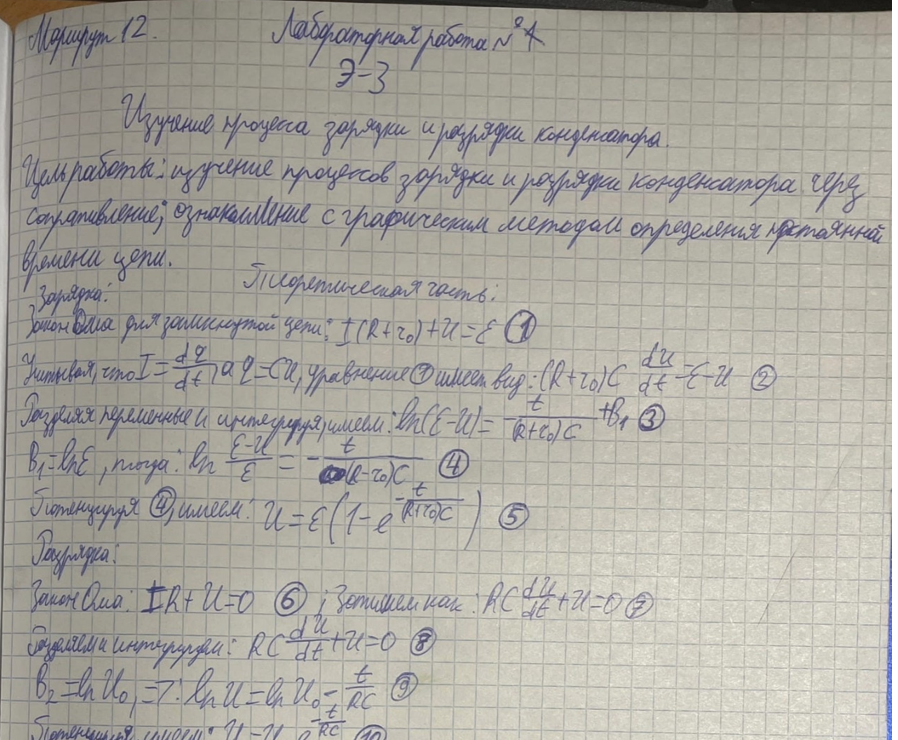 Маршрут 12. Лабораторная работа №4
Э-3
Изучение процесса зарядки и разрядки конденсатора.
Цель работы: изучение процессов зарядки и разрядки конденсатора через
сопративление; ознакомление с графическим методом определения постоянной
времени цепи.
Теоретическая часть:
Зарядка:
Закон Ома для замкнутой цепи: I(R+r₀)+U=ε ①
Учитывая, что I=dq/dt, а q=CU, уравнение ① имеет вид: (R+r₀)C dU/dt=ε-U ②
Разделяя переменные и интегрируя, имеем: ln(ε-U)= -t/(R+r₀)C +B₁ ③
B₁=lnε, тогда: ln (ε-U)/ε = -t/(R-r₀)C ④
Потенцируя ④, имеем: U=ε(1-e^(-t/(R+r₀)C)) ⑤
Разрядка:
Закон Ома: IR+U=0 ⑥; Запишем как: RC dU/dt+U=0 ⑦
Разделяем и интегрируем: RC dU/dt+U=0 ⑧
B₂=lnU₀, =>: lnU=lnU₀-t/RC ⑨
имеем: e^(-t/RC) ⑩